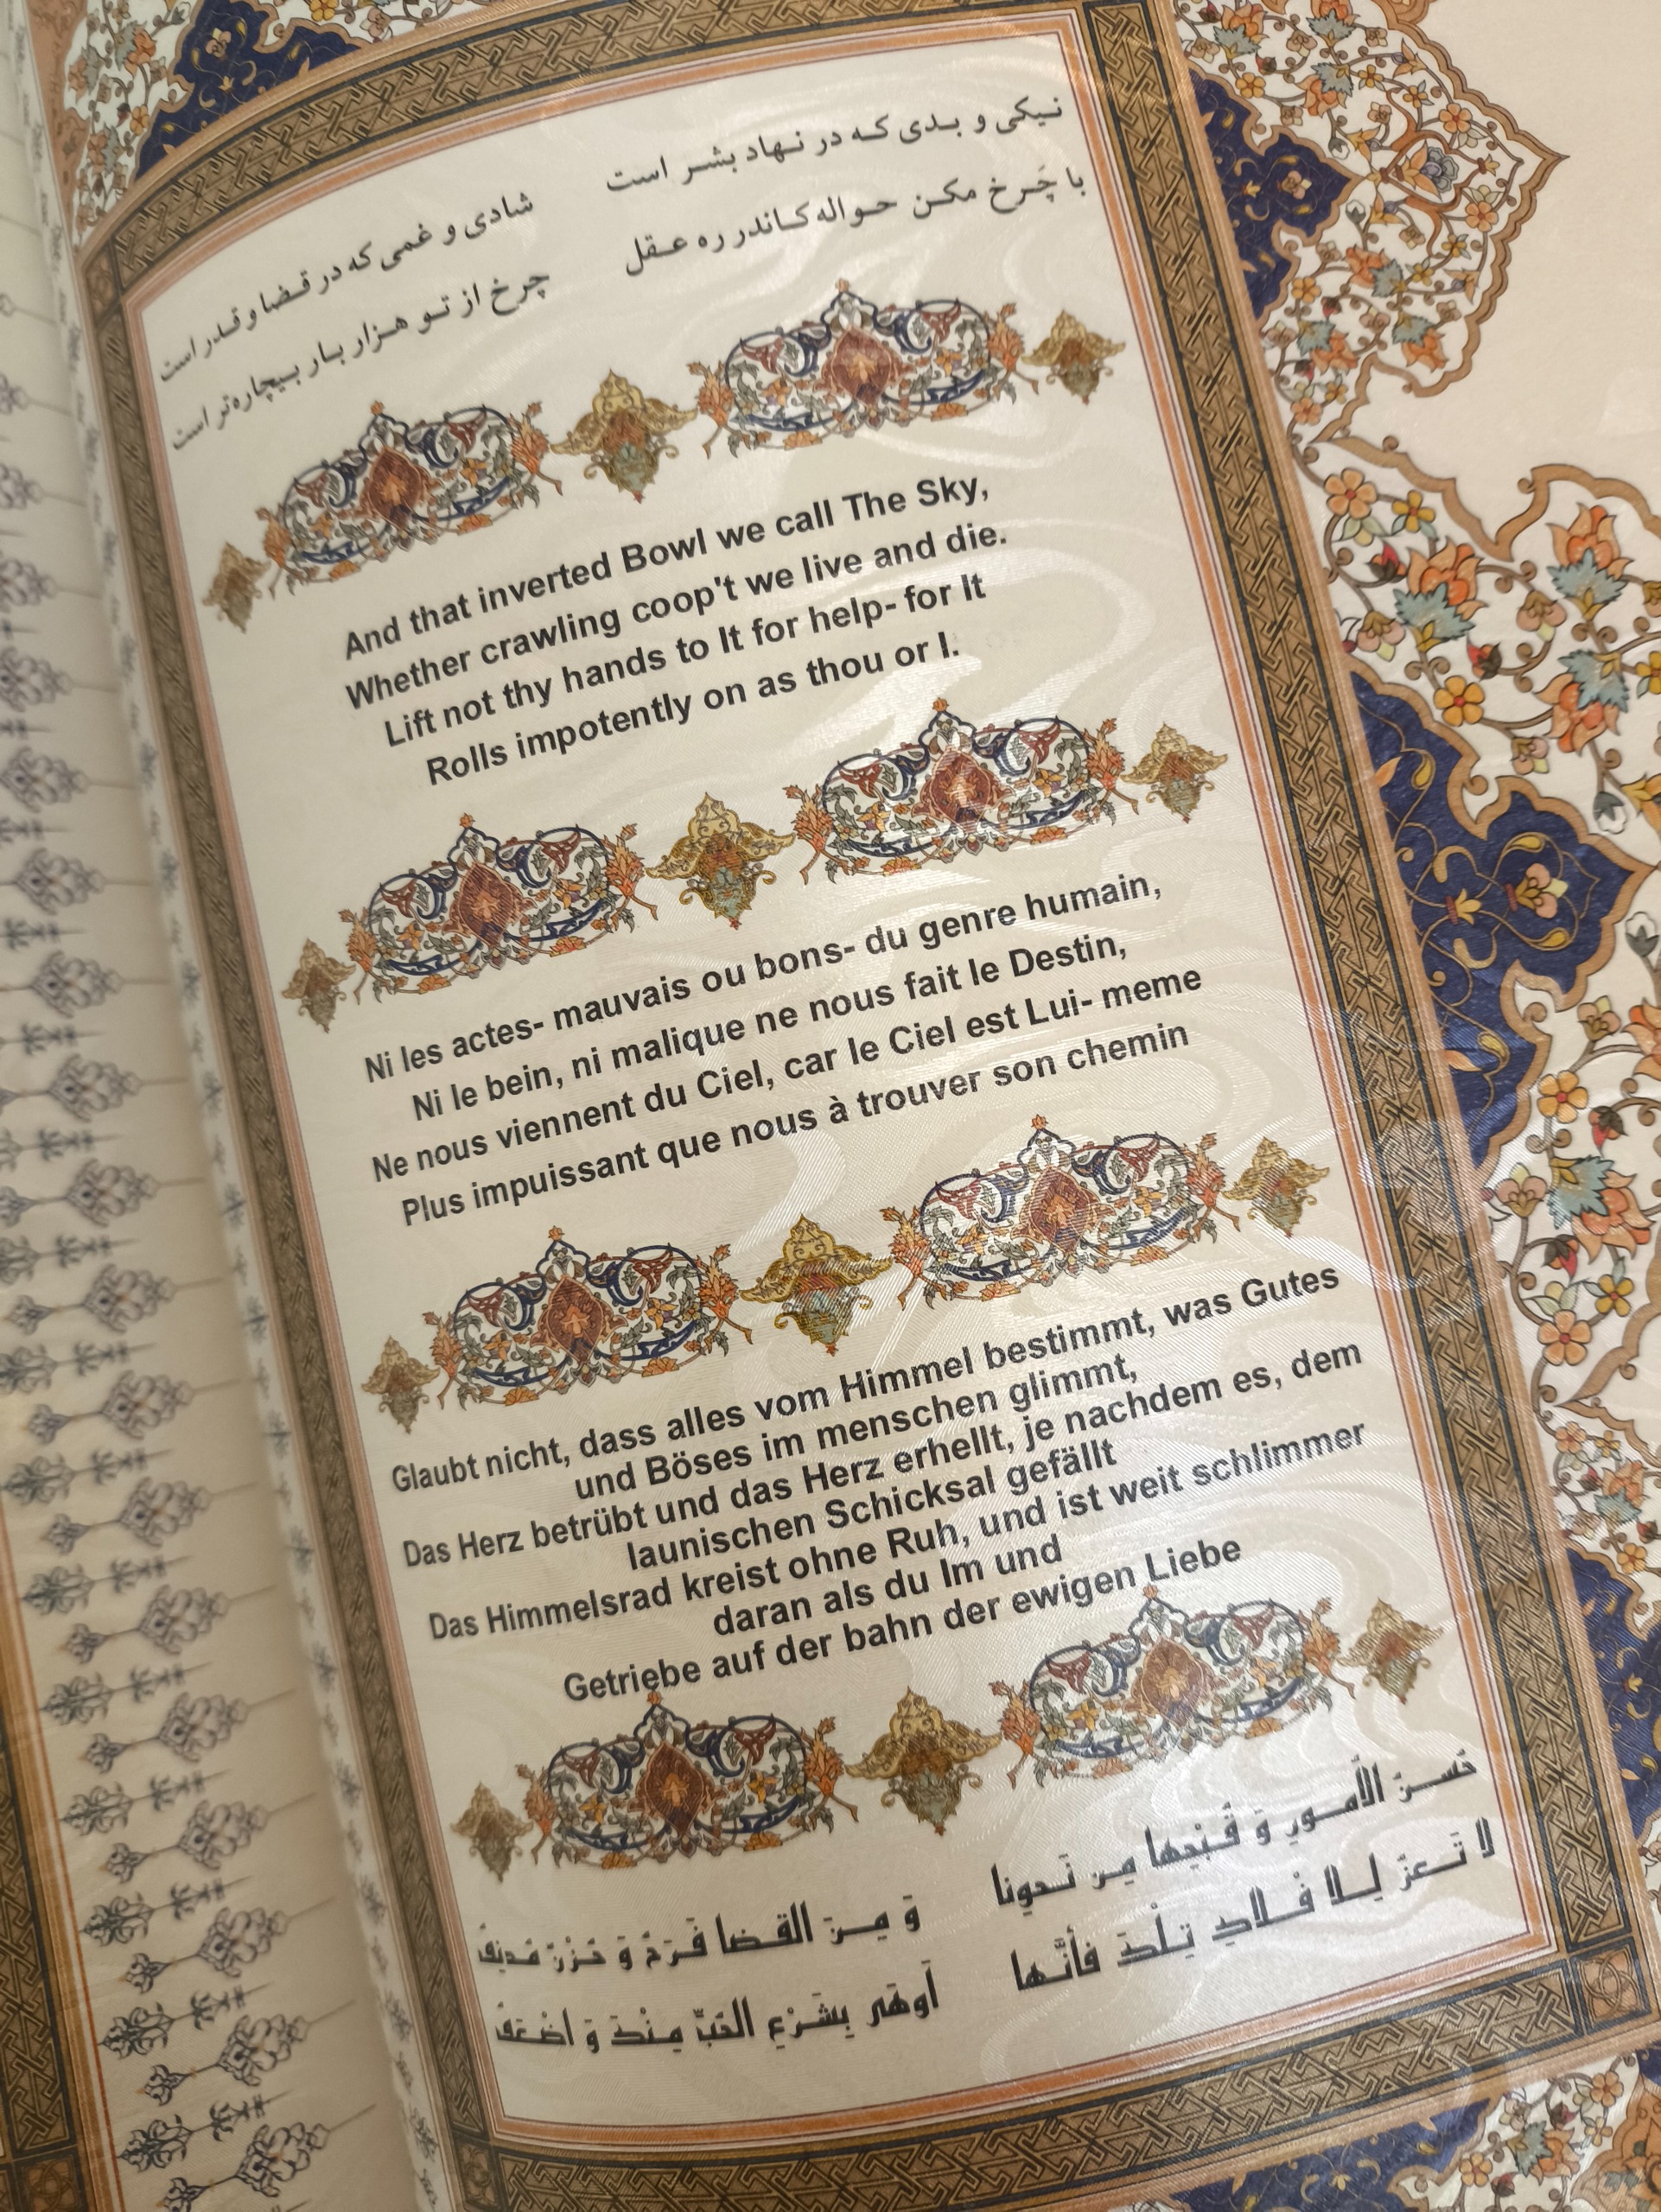 نیکی و بدی که در نهاد بشر است
شادی و غمی که در قضا و قدر است
با چَرخ مکن حواله کاندر ره عقل
چرخ از تو هزار بار بیچاره‌تر است
And that inverted Bowl we call The Sky,
Whether crawling coop't we live and die.
Lift not thy hands to It for help- for It
Rolls impotently on as thou or I.
Ni les actes- mauvais ou bons- du genre humain,
Ni le bein, ni malique ne nous fait le Destin,
Ne nous viennent du Ciel, car le Ciel est Lui- meme
Plus impuissant que nous à trouver son chemin
Glaubt nicht, dass alles vom Himmel bestimmt, was Gutes
und Böses im menschen glimmt,
Das Herz betrübt und das Herz erhellt, je nachdem es, dem
launischen Schicksal gefällt
Das Himmelsrad kreist ohne Ruh, und ist weit schlimmer
daran als du Im und
Getriebe auf der bahn der ewigen Liebe
حُسنُ الاَمورِ وَ قُبْحِها مِن نَحوِنا
وَ مِنَ القضا فَرَحٌ وَ حُزْنٌ
لا تَعزُ فَأنَّها
اَوهَی بِشَرْعِ الحُبِّ مِنْكَ وَ اضْعَفُ